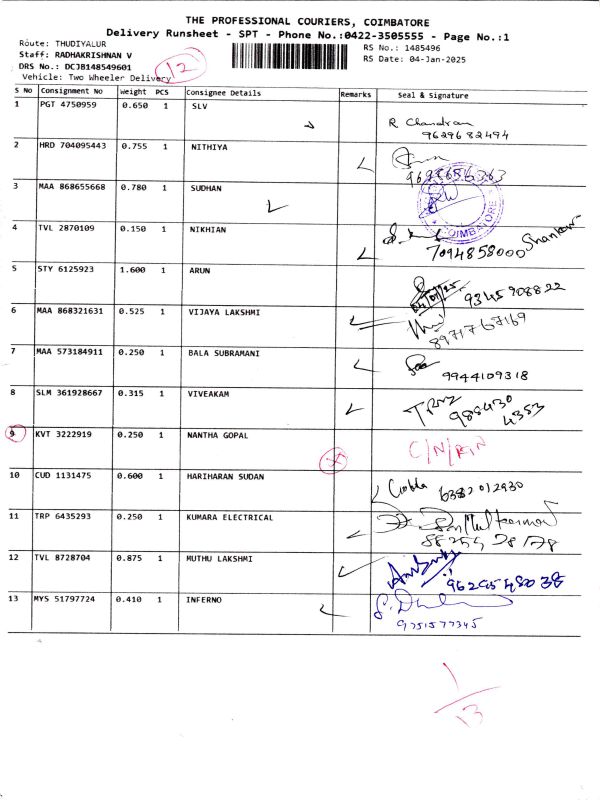 THE PROFESSIONAL COURIERS, COIMBATORE
Delivery Runsheet - SPT - Phone No.:0422-3505555 - Page No.:1
Route: THUDIYALUR
Staff: RADHAKRISHNAN V
DRS No.: DCJB148549601
Vehicle: Two Wheeler Delivery
12
RS No.: 1485496
RS Date: 04-Jan-2025
S No Consignment No Weight PCS Consignee Details Remarks Seal & Signature
1 PGT 4750959 0.650 1 SLV R Chandran
9629682494
2 HRD 704095443 0.755 1 NITHIYA
3 MAA 868655668 0.780 1 SUDHAN
COIMBATORE
4 TVL 2870109 0.150 1 NIKHIAN Shankar
7094858000
5 STY 6125923 1.600 1 ARUN
04/01/25 9345908822
6 MAA 868321631 0.525 1 VIJAYA LAKSHMI
8971767169
7 MAA 573184911 0.250 1 BALA SUBRAMANI
9944109318
8 SLM 361928667 0.315 1 VIVEAKAM
988430
4353
9 KVT 3222919 0.250 1 NANTHA GOPAL
10 CUD 1131475 0.600 1 HARIHARAN SUDAN
6382012930
11 TRP 6435293 0.250 1 KUMARA ELECTRICAL
12 TVL 8728704 0.875 1 MUTHU LAKSHMI
9629548038
13 MYS 51797724 0.410 1 INFERNO
9751577345
1
13